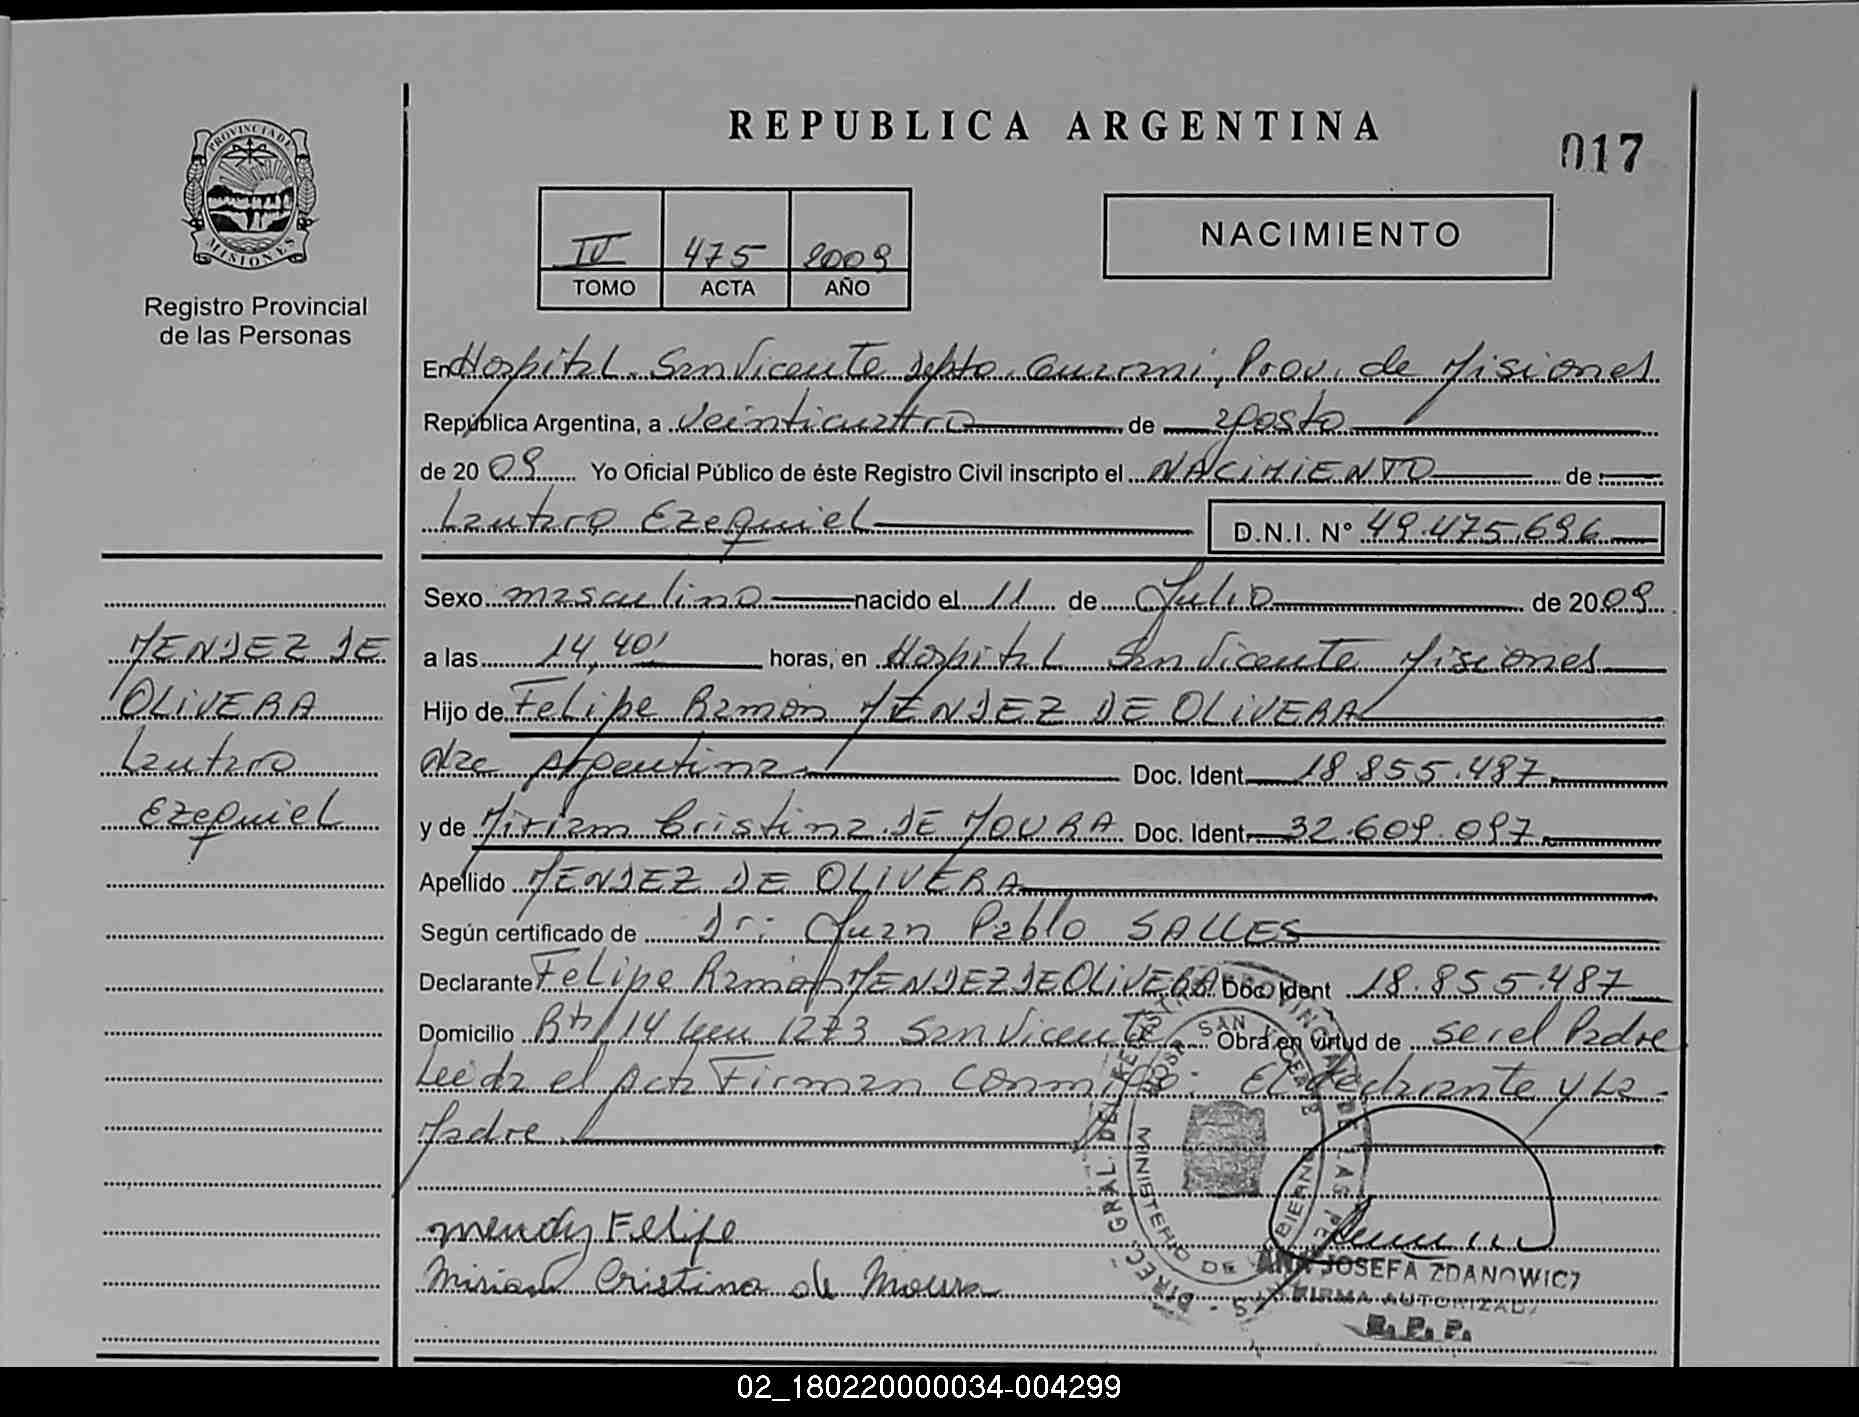 REPUBLICA ARGENTINA
017
PROVINCIA DE
MISIONES
Registro Provincial
de las Personas
IV 475 2009
TOMO ACTA AÑO
NACIMIENTO
En Hospital. San Vicente Depto. Guarani, Prov. de Misiones
República Argentina, a veinticuattro de agosto
de 2009 Yo Oficial Público de éste Registro Civil inscripto el NACIMIENTO de
Lautaro Ezequiel D.N.I. Nº 49.475.696
Sexo masculino nacido el 11 de Julio de 2009
a las 14,40' horas, en Hospital San Vicente Misiones
Hijo de Felipe Ramón MENDEZ DE OLIVERA
Nac Argentina. Doc. Ident 18.855.487
y de Miriam Cristina DE MOURA Doc. Ident 32.609.097
Apellido MENDEZ DE OLIVERA
Según certificado de Dr: Juan Pablo SALLES
Declarante Felipe Ramón MENDEZ DE OLIVERA Doc. Ident 18.855.487
Domicilio Rta 14 km 1273 San Vicente Obra en virtud de ser el Padre
Leida el Acta Firman Conmigo: El declarante y La
Madre.
MENDEZ DE
OLIVERA
Lautaro
Ezequiel
Mendez Felipe
Miriam Cristina de Moura
DIREC. GRAL. DEL REGISTRO PROVINCIAL DE LAS PERSONAS
SAN VICENTE
MINISTERIO DE GOBIERNO
ANA JOSEFA ZDANOWICZ
FIRMA AUTORIZADA
R. P. P.
02_180220000034-004299